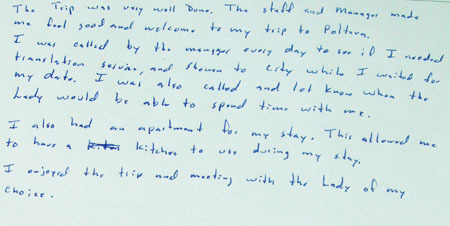 The Trip was very well Done. The staff and Manager made
me feel good and welcome to my trip to Poltava.
I was called by the manager every day to see if I needed
translation service, and shown to city while I waited for
my date. I was also called and let know when the
Lady would be able to spend time with me.
I also had an apartment for my stay. This allowed me
to have a kitchen to use during my stay.
I enjoyed the trip and meeting with the Lady of my
choice.